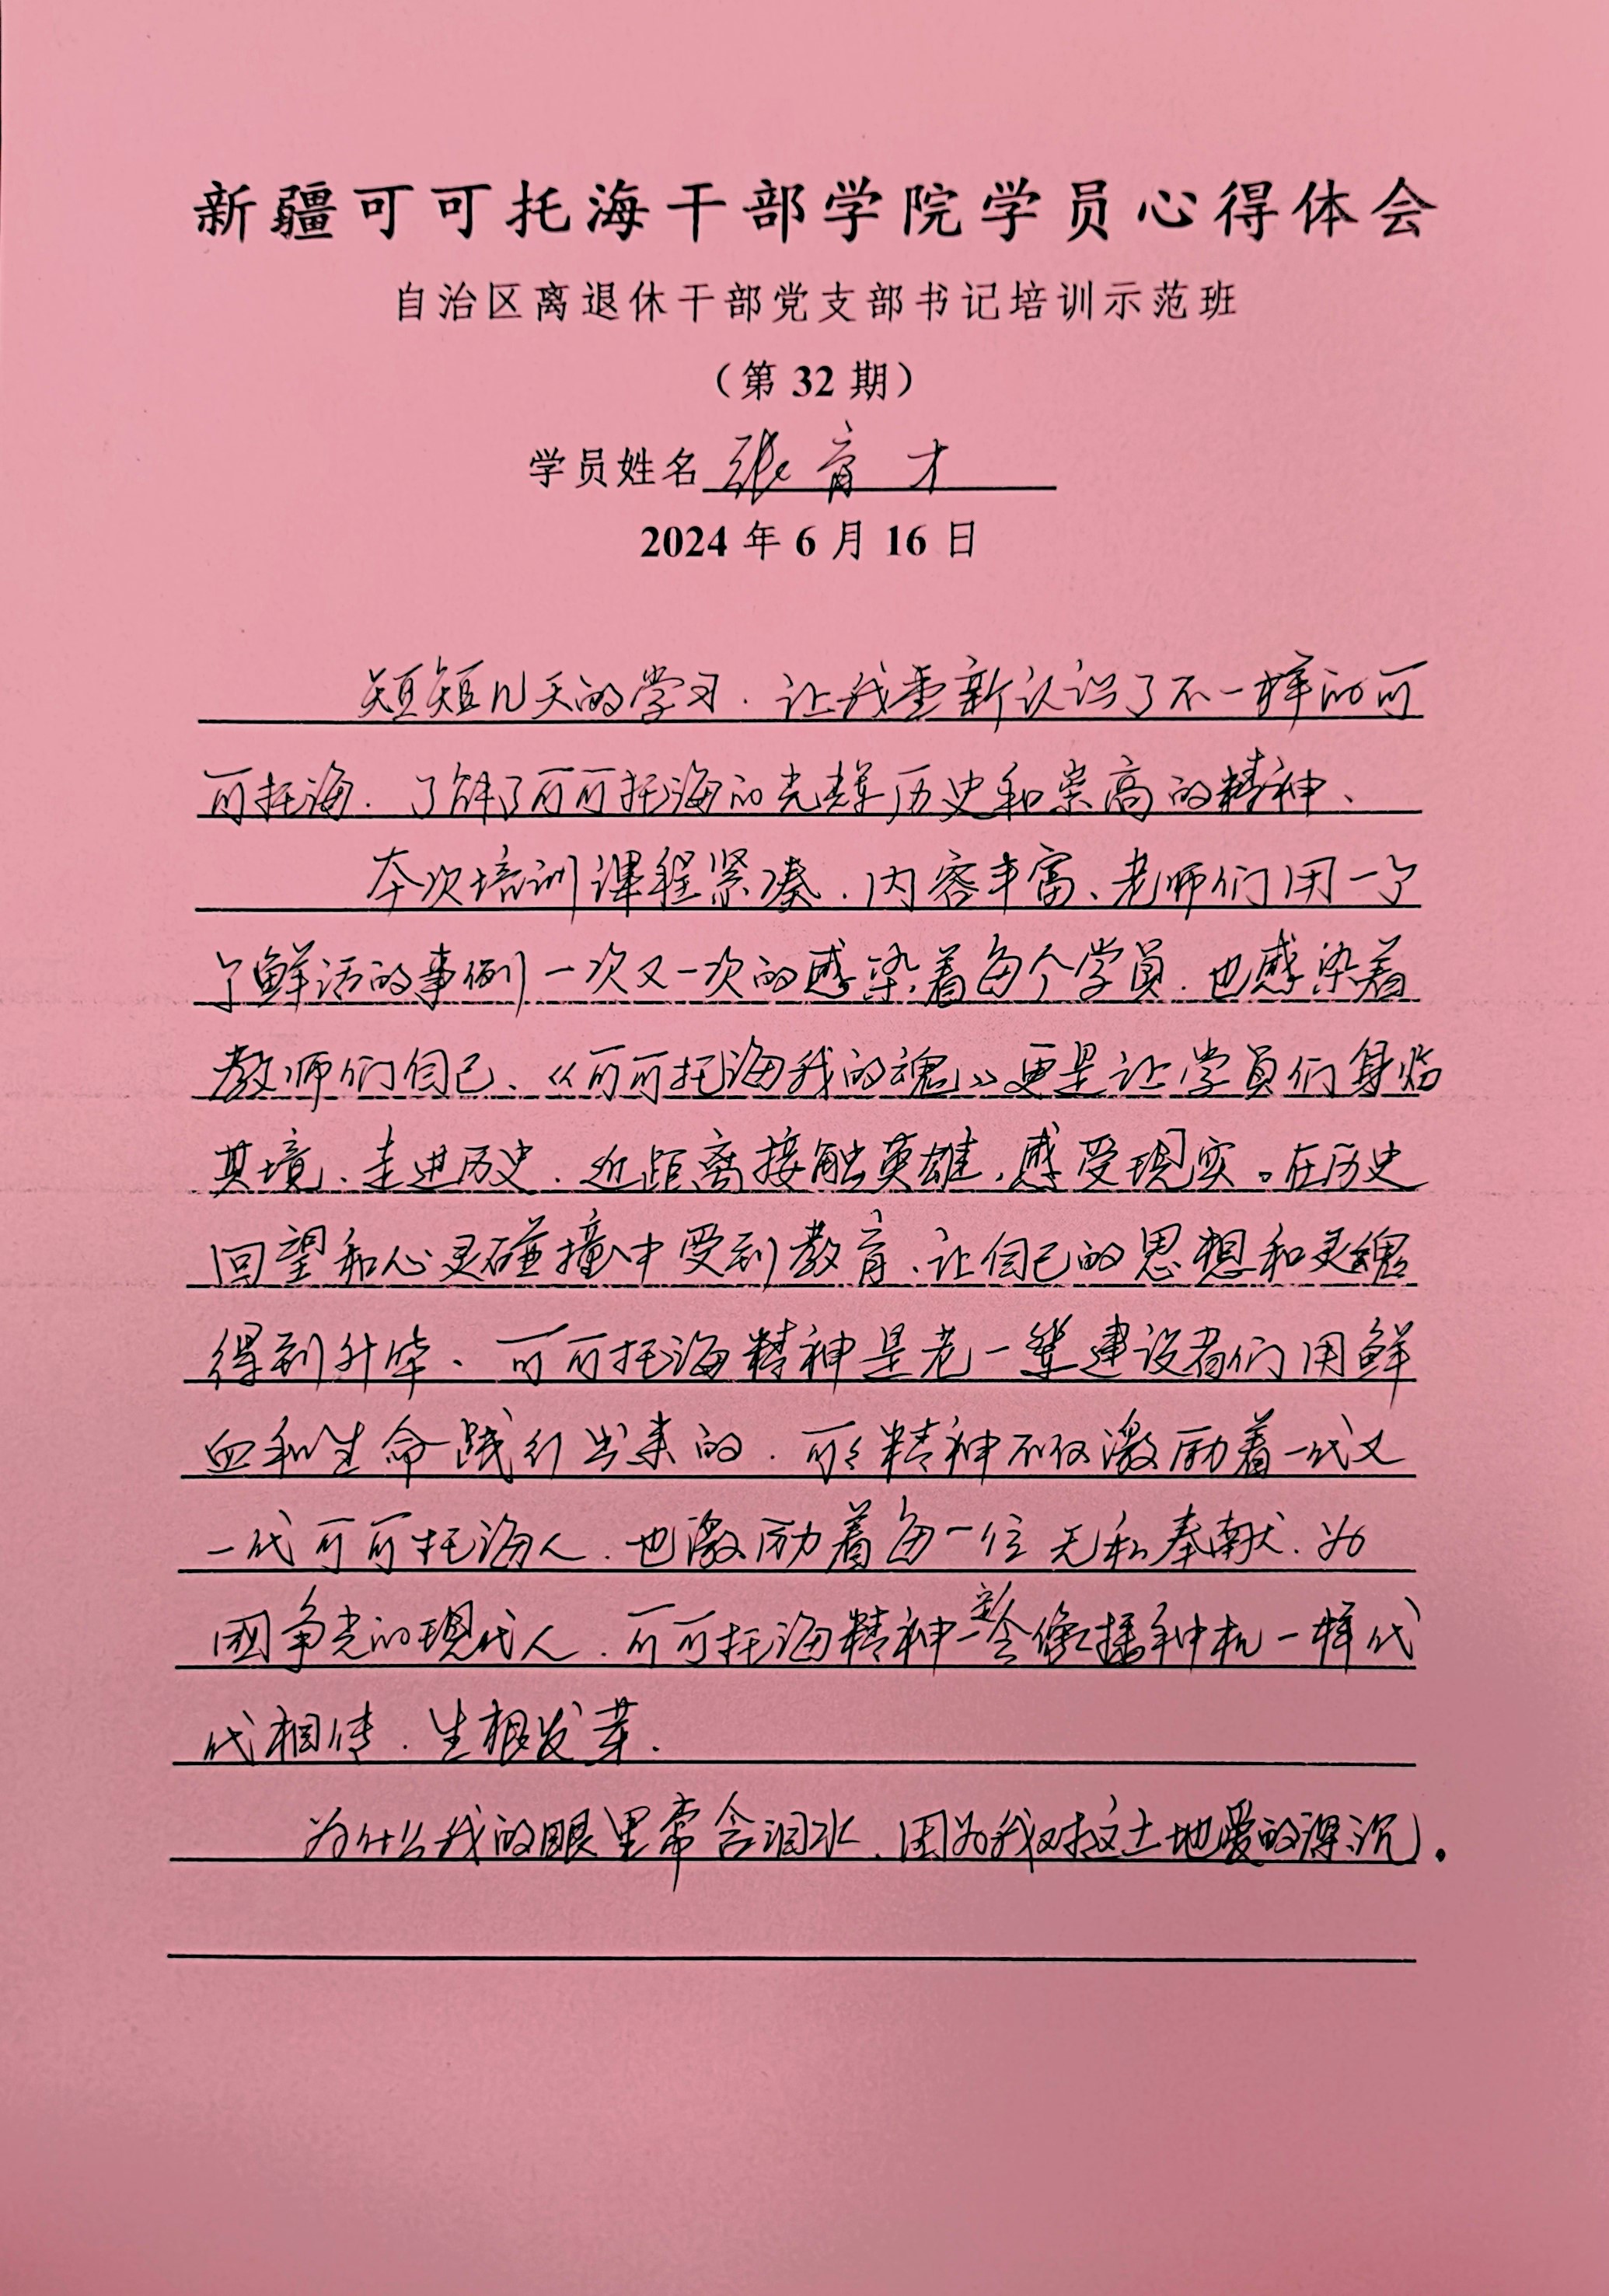 新疆可可托海干部学院学员心得体会
自治区离退休干部党支部书记培训示范班
（第 32 期）
学员姓名 张育才
2024 年 6 月 16 日
短短几天的学习. 让我重新认识了不一样的可
可托海. 了解了可可托海的光辉历史和崇高的精神、
本次培训课程紧凑. 内容丰富、老师们用一个
个鲜活的事例一次又一次的感染着每个学员. 也感染着
教师们自己、《可可托海我的魂》更是让学员们身临
其境、走进历史. 近距离接触英雄,感受现实。在历史
回望和心灵碰撞中受到教育、让自己的思想和灵魂
得到升华、可可托海精神是老一辈建设者们用鲜
血和生命践行出来的. 可可精神不仅激励着一代又
一代可可托海人. 也激励着每一位无私奉献. 为
国争光的现代人. 可可托海精神一定会像播种机一样代
代相传. 生根发芽.
为什么我的眼里常含泪水. 因为我对这土地爱的深沉).